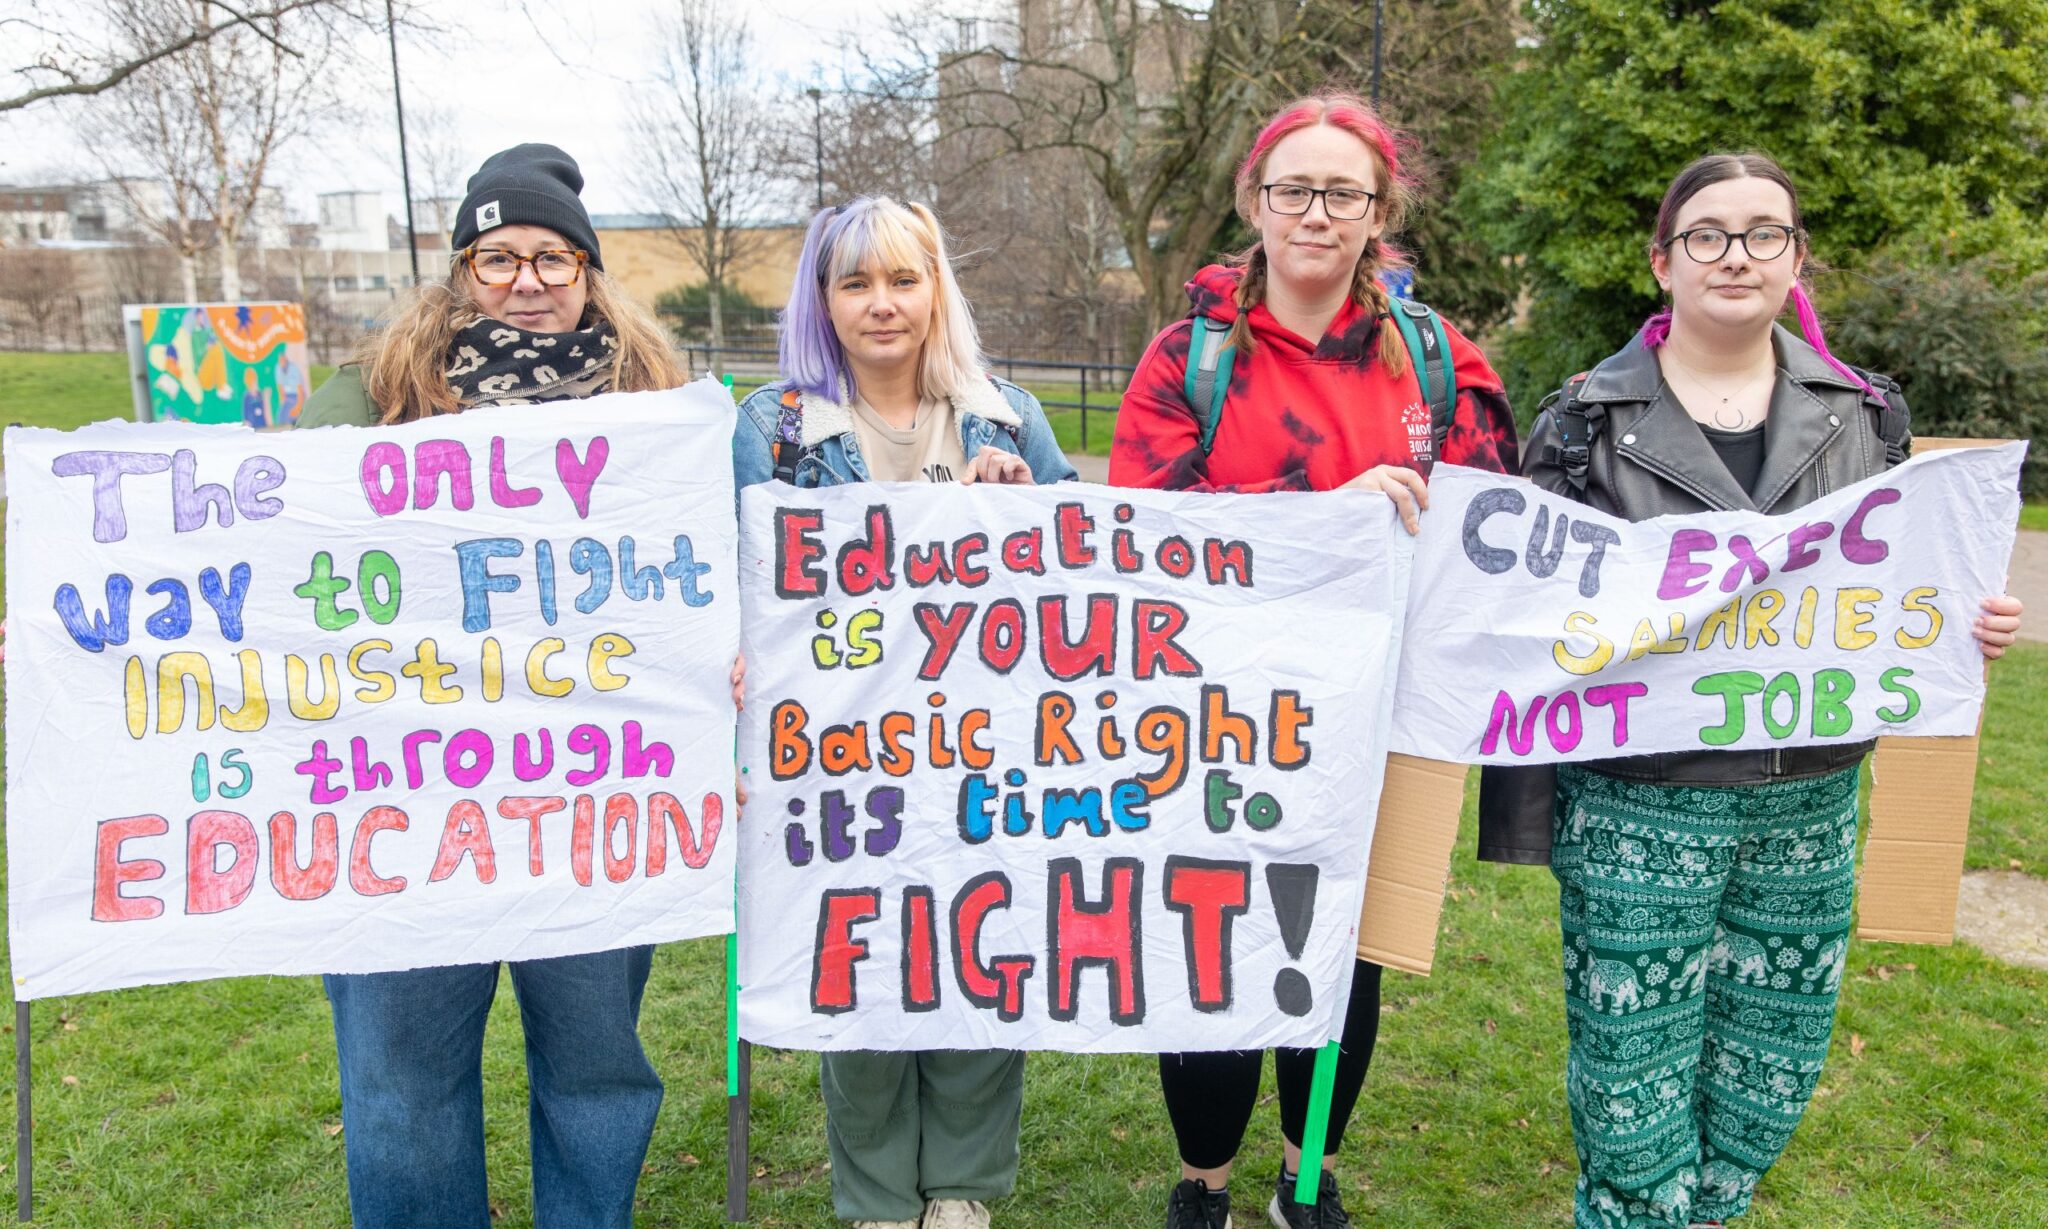 The ONLY
way to Fight
INJUStice
is through
EDUCATION
Education
is YOUR
Basic Right
its time to
FIGHT!
CUT EXEC
SALARIES
NOT JOBS
YOU